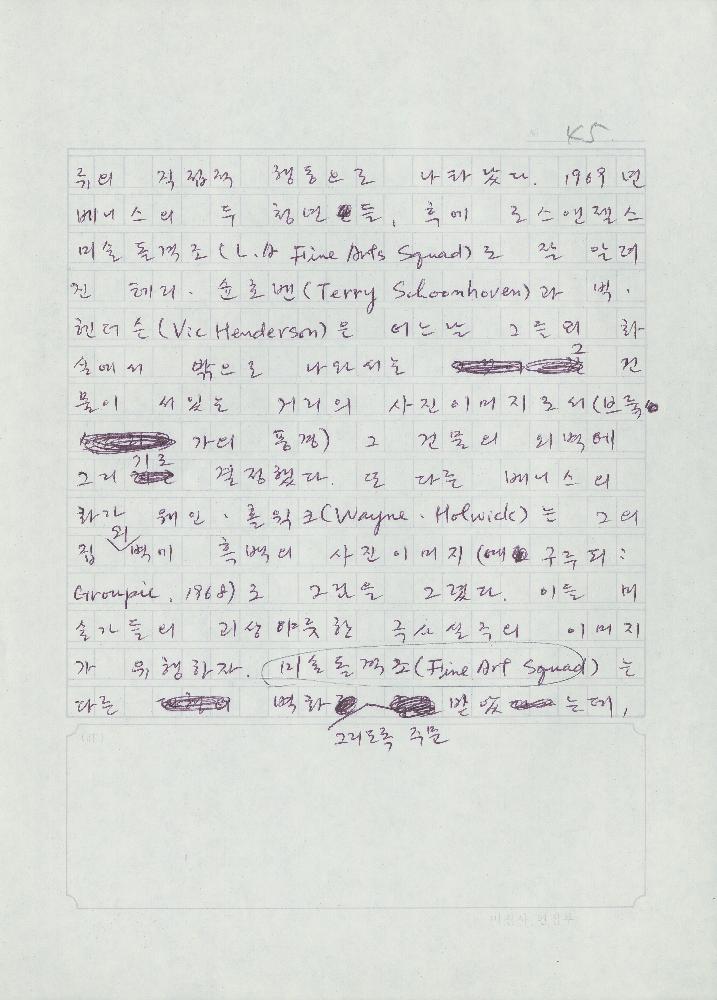 45.
류의 직접적 행동으로 나타났다. 1969년
베니스의 두 청년들, 후에 로스앤젤스
미술돌격조(L.A Fine Arts Squad)로 잘 알려
진 테리·슌호벤(Terry Schoonhoven)과 빅·
헨더슨(Vic Henderson)은 어느날 그들의 화
실에서 밖으로 나와서는 그 건
물이 서있는 거리의 사진이미지로서(브룩
가의 풍경) 그 건물의 외벽에
그리기로 결정했다. 또 다른 베니스의
화가 웨인·홀윅크(Wayne·Holwick)는 그의
집 외벽에 흑백의 사진이미지(예 구루피:
Groupie, 1968)로 그것을 그렸다. 이들 미
술가들의 괴상야릇한 극사실주의 이미지
가 유행하자. 미술돌격조(Fine Art Squad)는
다른 벽화 그리도록 주문 받았는데,
미진사 편집부